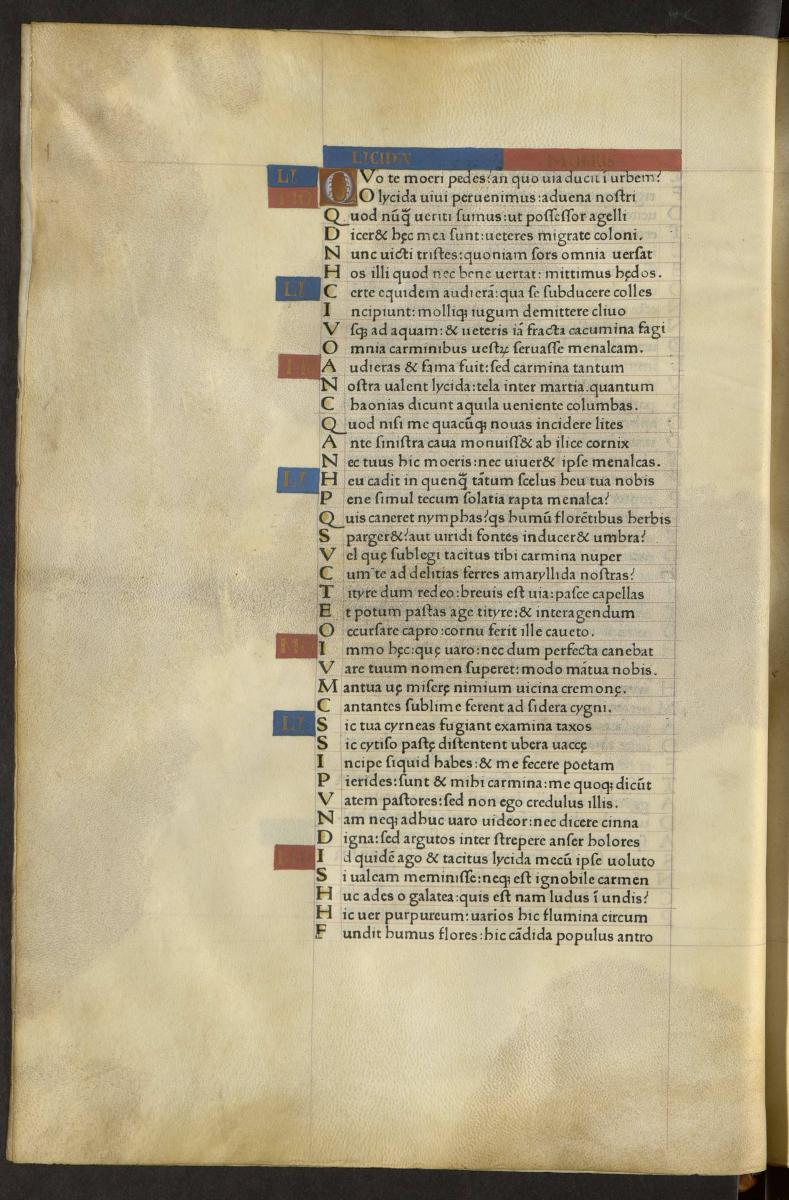 LICIDA MOERIS
LI QVo te moeri pedes? an quo uia ducit ĩ urbem?
MO O lycida uiui peruenimus: aduena nostri
Quod nũq̃ ueriti sumus: ut possessor agelli
Dicer& hęc mea sunt: ueteres migrate coloni.
Nunc uicti tristes: quoniam sors omnia uersat
Hos illi quod nec bene uertat: mittimus hędos.
LI Certe equidem audierã: qua se subducere colles
Incipiunt: molliq; iugum demittere cliuo
Vsq; ad aquam: & ueteris iã fracta cacumina fagi
Omnia carminibus uestrꝝ seruasse menalcam.
Audieras & fama fuit: sed carmina tantum
Nostra ualent lycida: tela inter martia. quantum
Chaonias dicunt aquila ueniente columbas.
Quod nisi me quacũq; nouas incidere lites
Ante sinistra caua monuiss& ab ilice cornix
Nec tuus hic moeris: nec uiuer& ipse menalcas.
LI Heu cadit in quenq̃ tãtum scelus heu tua nobis
Pene simul tecum solatia rapta menalca?
Quis caneret nymphas? qs humũ florẽtibus herbis
Sparger&? aut uiridi fontes inducer& umbra?
Vel quę sublegi tacitus tibi carmina nuper
Cum te ad delitias ferres amaryllida nostras?
Tityre dum redeo: breuis est uia: pasce capellas
Et potum pastas age tityre: & interagendum
Occursare capro: cornu ferit ille caueto.
MO Immo hęc: quę uaro: nec dum perfecta canebat
Vare tuum nomen superet: modo mãtua nobis.
Mantua uę miserę nimium uicina cremonę.
Cantantes sublime ferent ad sidera cygni.
LI Sic tua cyrneas fugiant examina taxos
Sic cytiso pastę distentent ubera uaccę
Incipe siquid habes: & me fecere poetam
Pierides: sunt & mihi carmina: me quoq; dicũt
Vatem pastores: sed non ego credulus illis.
Nam neq; adhuc uaro uideor: nec dicere cinna
Digna: sed argutos inter strepere anser holores
Id quidẽ ago & tacitus lycida mecũ ipse uoluto
Si ualeam meminisse: neq; est ignobile carmen
Huc ades o galatea: quis est nam ludus ĩ undis?
Hic uer purpureum: uarios hic flumina circum
Fundit humus flores: hic cãdida populus antro